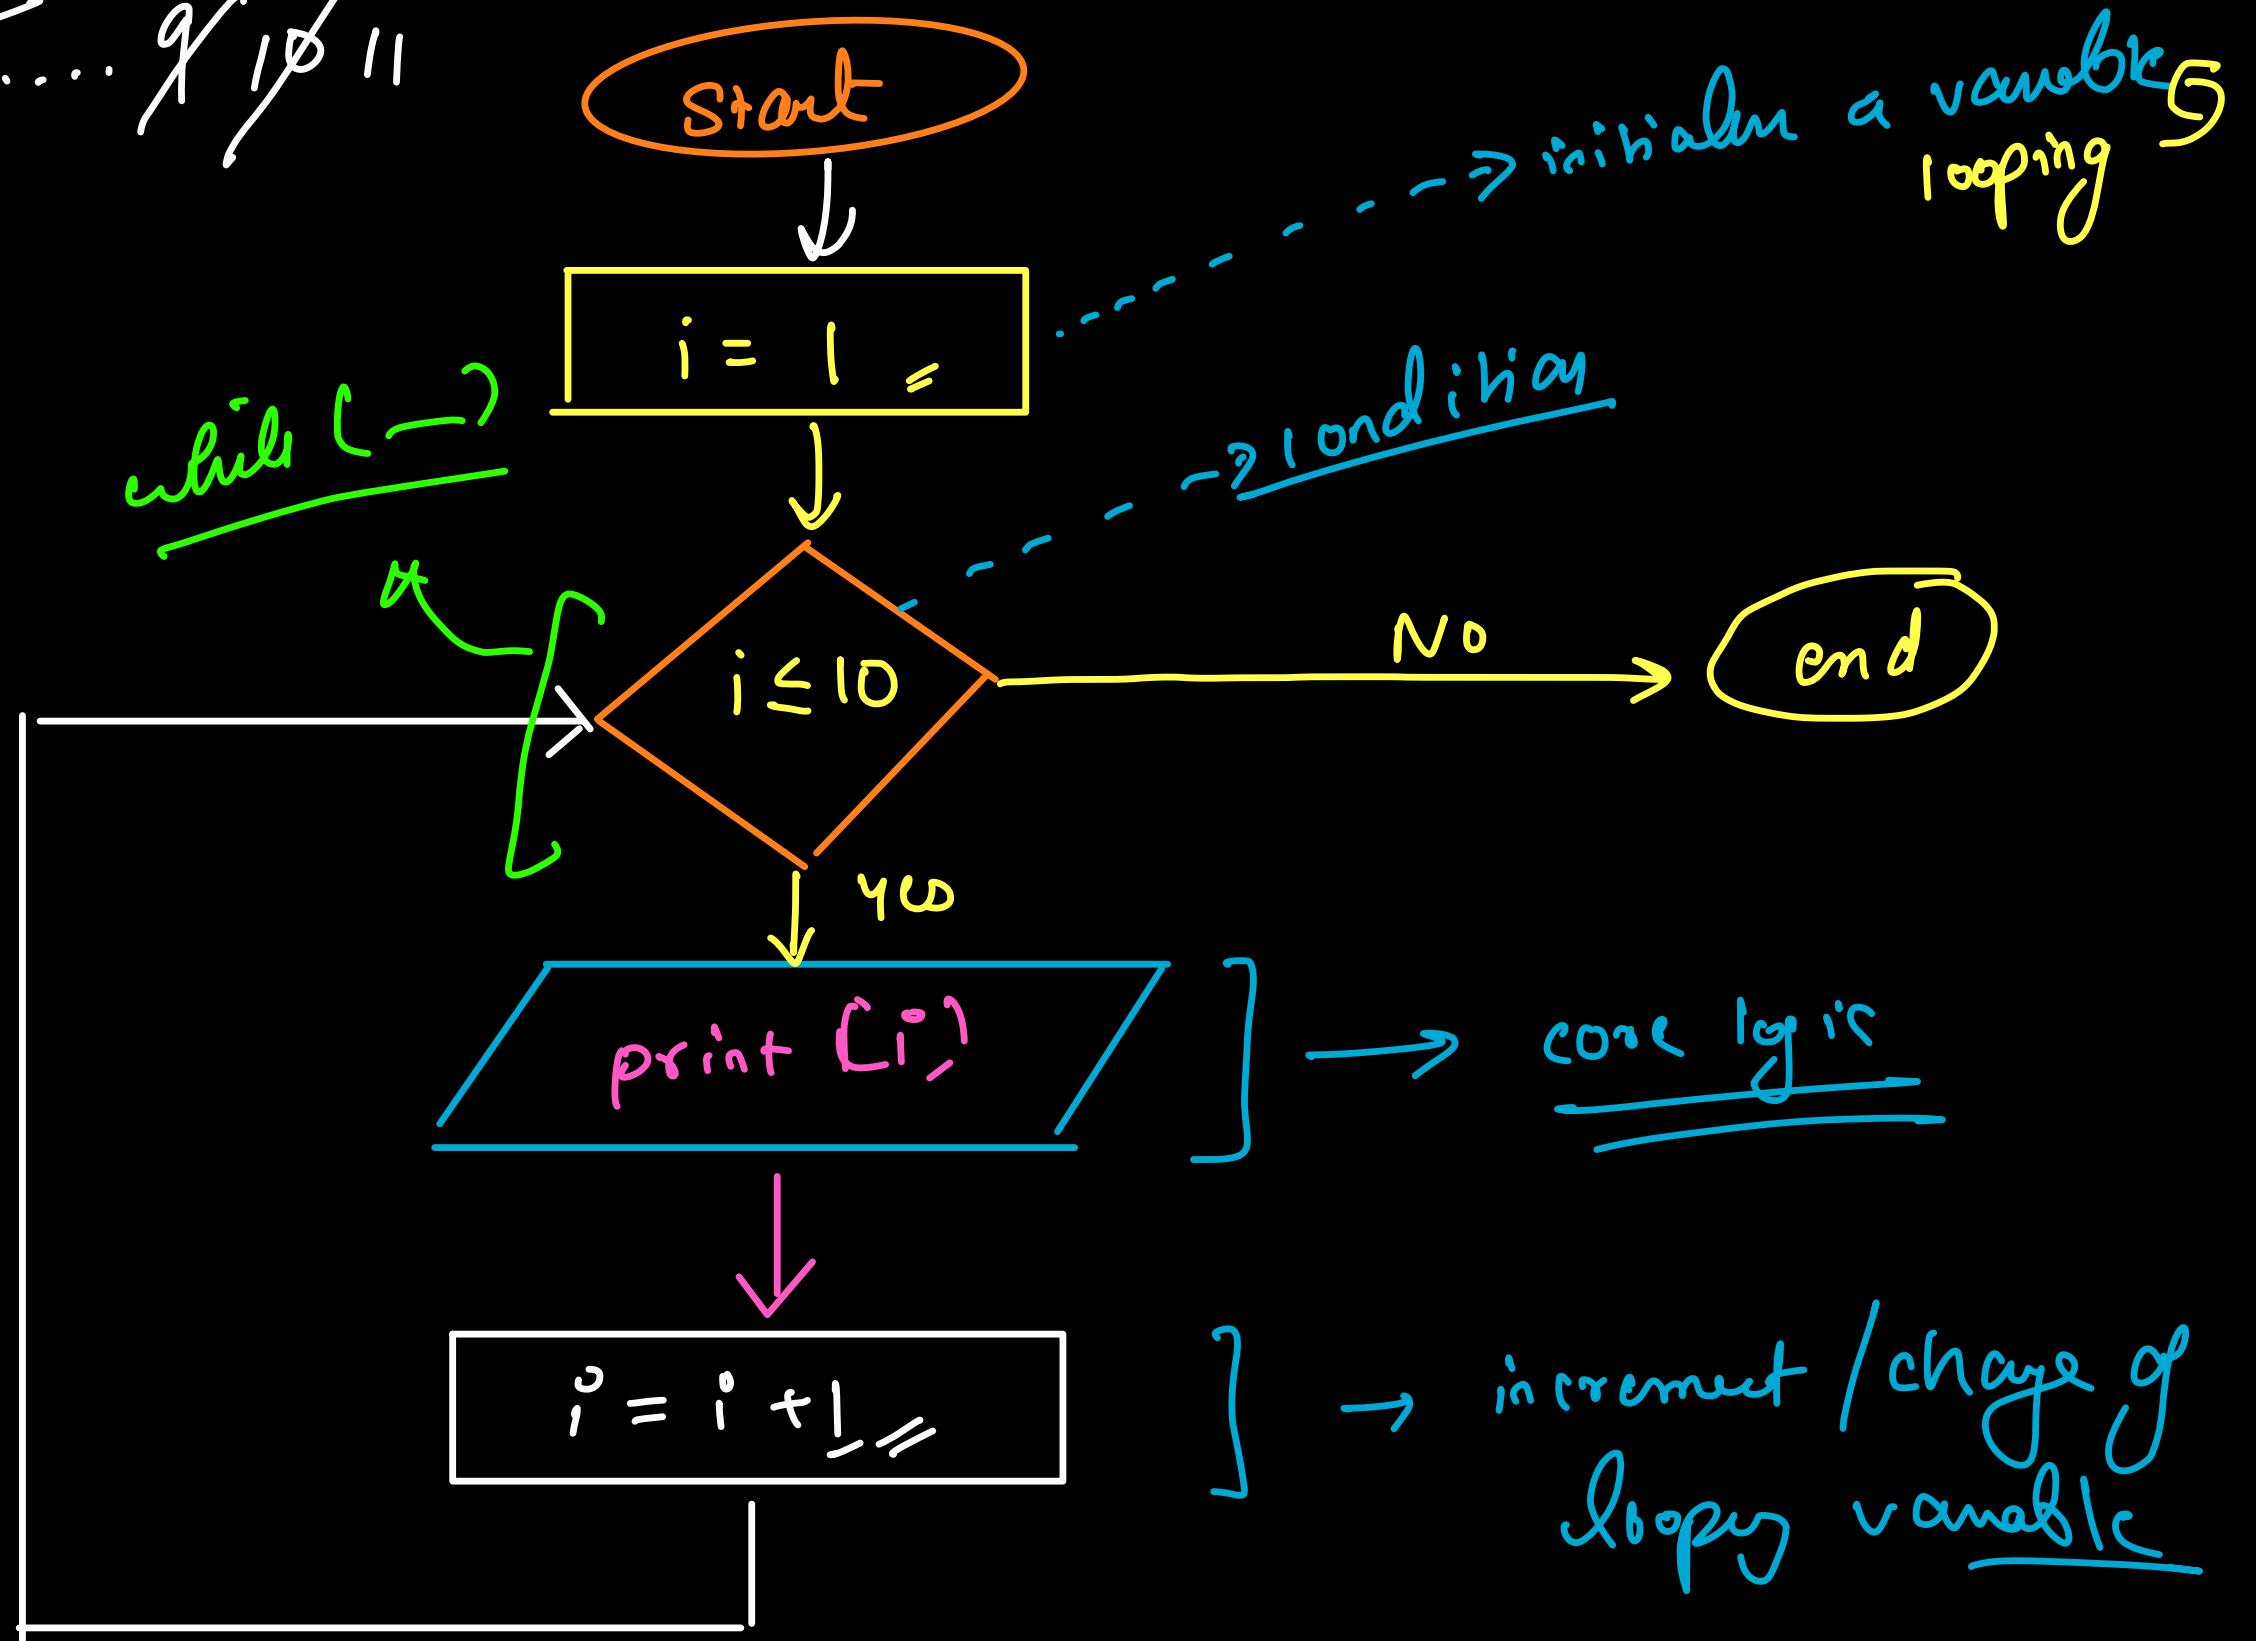 .... 9 10 11
start
initialize a variable
looping
i = 1
while ( _ )
condition
i ≤ 10
No
end
yes
print (i)
core logic
i = i + 1
increment / change of
looping variable